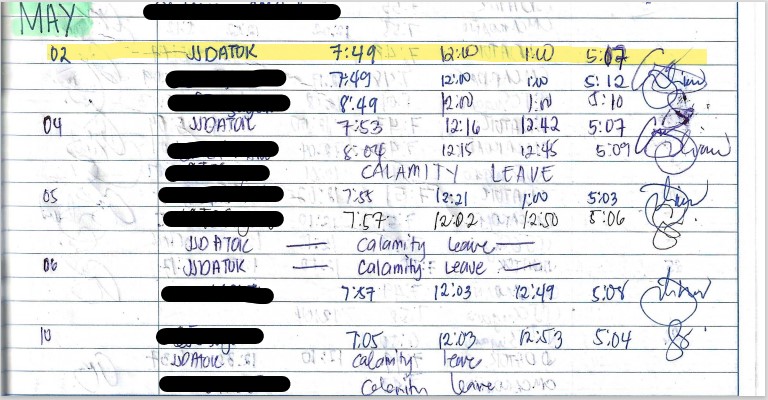 MAY
02 JJDATOK 7:49 12:00 1:00 5:07
7:49 12:00 1:00 5:12
8:49 12:00 1:00 5:10
04 JJDATOK 7:53 12:16 12:42 5:07
8:04 12:15 12:45 5:09
CALAMITY LEAVE
05 7:55 12:21 1:00 5:03
7:57 12:02 12:50 5:06
JJDATOK — Calamity leave —
06 JJDATOK — Calamity leave —
7:57 12:03 12:49 5:08
10 7:05 12:03 12:53 5:04
JJDATOK calamity leave
Calamity leave